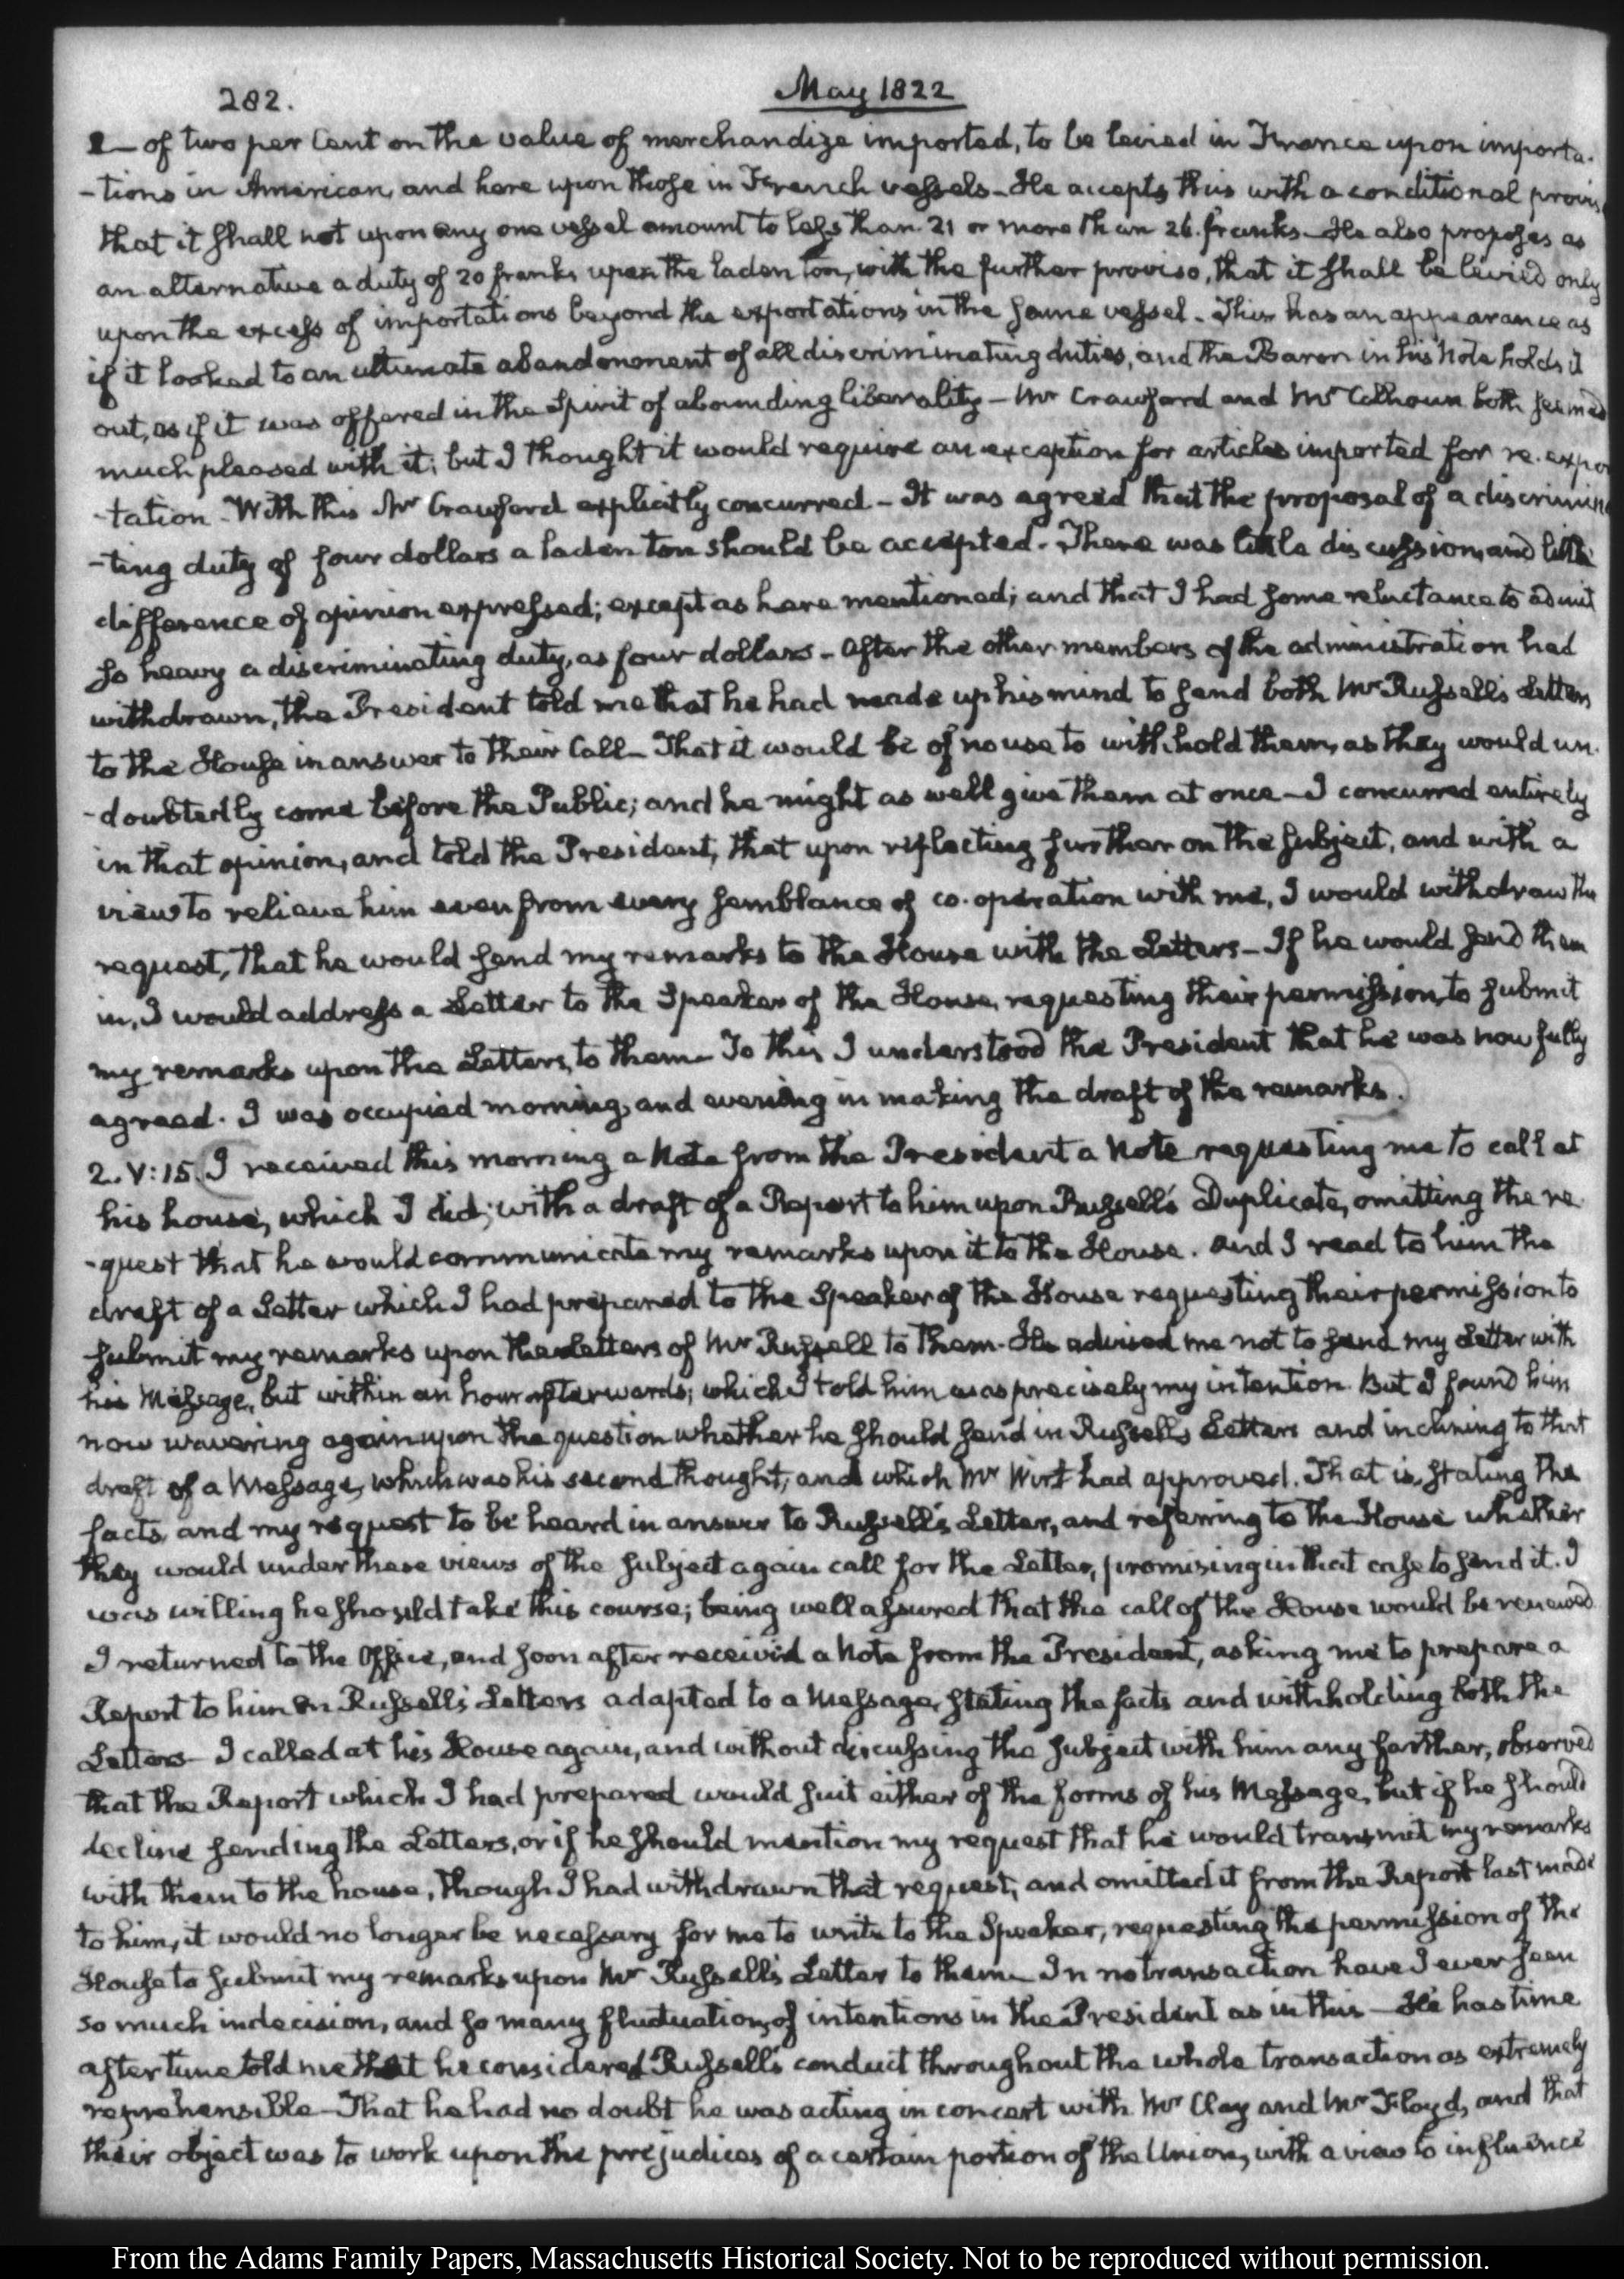 282.
May 1822
1— of two per Cent on the value of merchandize imported, to be levied in France upon importa-
-tions in American, and here upon those in French vessels — He accepts this with a conditional provis
that it shall not upon any one vessel amount to less than 21 or more than 26. franks — He also proposes as
an alternative a duty of 20 franks upon the laden ton, with the further proviso, that it shall be levied only
upon the excess of importations beyond the exportations in the same vessel — This has an appearance as
if it looked to an ultimate abandonment of all discriminating duties, and the Baron in his Note holds it
out, as if it was offered in the Spirit of abounding liberality — Mr Crawford and Mr Calhoun both seemed
much pleased with it; but I thought it would require an exception for articles imported for re-expor
-tation — With this Mr Crawford explicitly concurred — It was agreed that the proposal of a discrimina
-ting duty of four dollars a laden ton should be accepted — There was little discussion, and little
difference of opinion expressed; except as here mentioned; and that I had some reluctance to admit
so heavy a discriminating duty, as four dollars — After the other members of the administration had
withdrawn, the President told me that he had made up his mind to send both Mr Russell's Letters
to the House in answer to their Call — That it would be of no use to withhold them, as they would un-
-doubtedly come before the Public; and he might as well give them at once — I concurred entirely
in that opinion, and told the President, that upon reflecting further on the subject, and with a
view to relieve him even from every semblance of co-operation with me, I would withdraw the
request, that he would send my remarks to the House with the Letters — If he would send them
in, I would address a Letter to the Speaker of the House, requesting their permission, to submit
my remarks upon the Letters, to them — To this I understood the President that he was now fully
agreed. I was occupied morning, and evening in making the draft of the remarks.
2. V:15. I received this morning a Note from the President a Note requesting me to call at
his house, which I did; with a draft of a Report to him upon Russell's Duplicate, omitting the re-
-quest that he would communicate my remarks upon it to the House. And I read to him the
draft of a Letter which I had prepared to the Speaker of the House requesting their permission to
submit my remarks upon the Letters of Mr Russell to them. He advised me not to send my Letter with
his Message, but within an hour afterwards; which I told him was precisely my intention. But I found him
now wavering again upon the question whether he should send in Russell's Letters and inclining to that
draft of a Message, which was his second thought, and which Mr Wirt had approved. That is, stating the
facts, and my request to be heard in answer to Russell's Letter, and referring to the House whether
they would under these views of the subject again call for the Letter, promising in that case to send it. I
was willing he should take this course; being well assured that the call of the House would be renewed
I returned to the Office, and soon after received a Note from the President, asking me to prepare a
Report to him on Russell's Letters adapted to a Message, stating the facts and withholding both the
Letters — I called at his House again, and without discussing the subject with him any farther, observed
that the Report which I had prepared would suit either of the forms of his Message, but if he should
decline sending the Letters, or if he should mention my request that he would transmit my remarks
with them to the house, though I had withdrawn that request, and omitted it from the Report last made
to him, it would no longer be necessary for me to write to the Speaker, requesting the permission of the
House to submit my remarks upon Mr Russell's Letter to them — In no transaction have I ever seen
so much indecision, and so many fluctuations of intentions in the President as in this — He has time
after time told me that he considered Russell's conduct throughout the whole transaction as extremely
reprehensible — That he had no doubt he was acting in concert with Mr Clay and Mr Floyd, and that
their object was to work upon the prejudices of a certain portion of the Union, with a view to influence
From the Adams Family Papers, Massachusetts Historical Society. Not to be reproduced without permission.